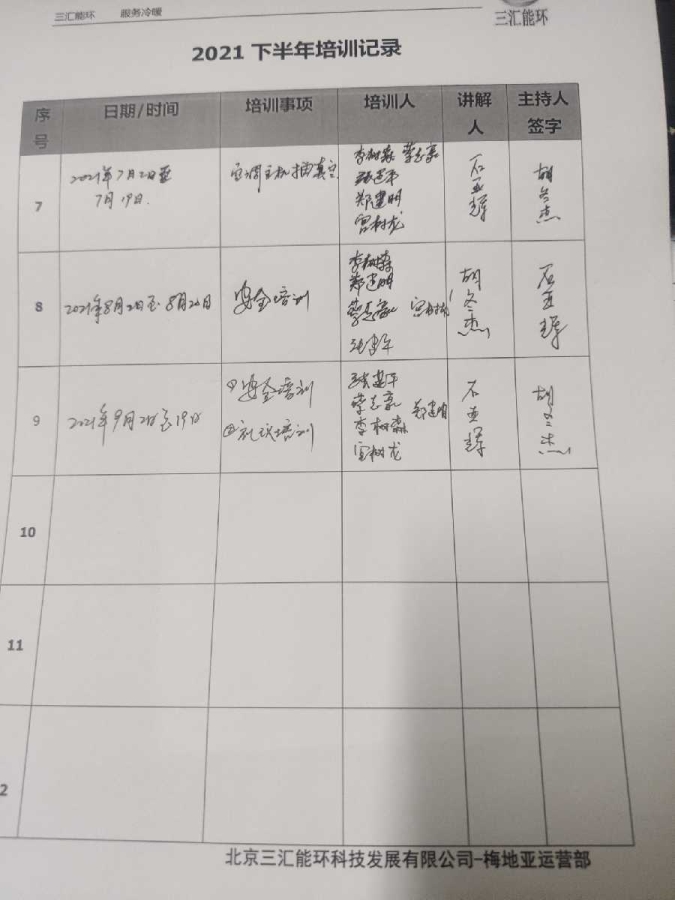 三汇能环 服务冷暖
三汇能环
2021 下半年培训记录
序号 日期/时间 培训事项 培训人 讲解人 主持人签字
7 2021年7月2日至7月19日. 空调主机抽真空 李树森 蔡志豪 张建平 郑建明 宫树龙 石亚辉 胡冬杰
8 2021年8月2日至8月26日 安全培训 李树森 郑建明 蔡志豪 宫树龙 张建平 胡冬杰 石亚辉
9 2021年9月2日至19日 ①安全培训 ②礼仪培训 张建平 蔡志豪 郑建明 李树森 宫树龙 石亚辉 胡冬杰
10
11
2
北京三汇能环科技发展有限公司-梅地亚运营部